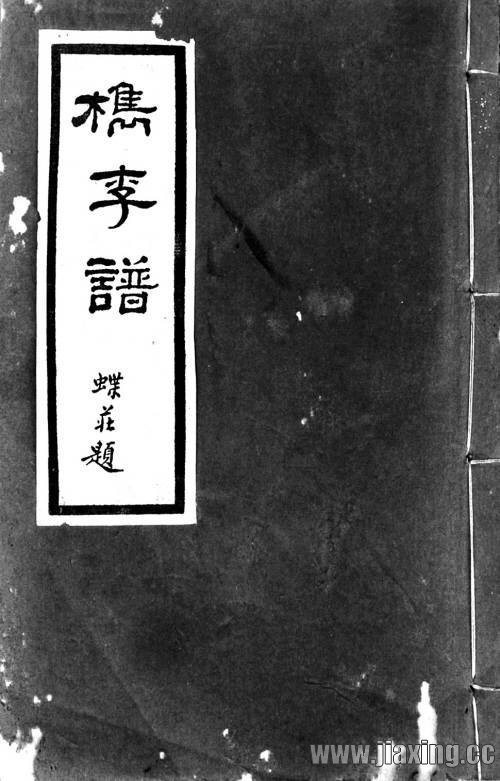 檇李譜
蝶莊題
www.jiaxing.cc